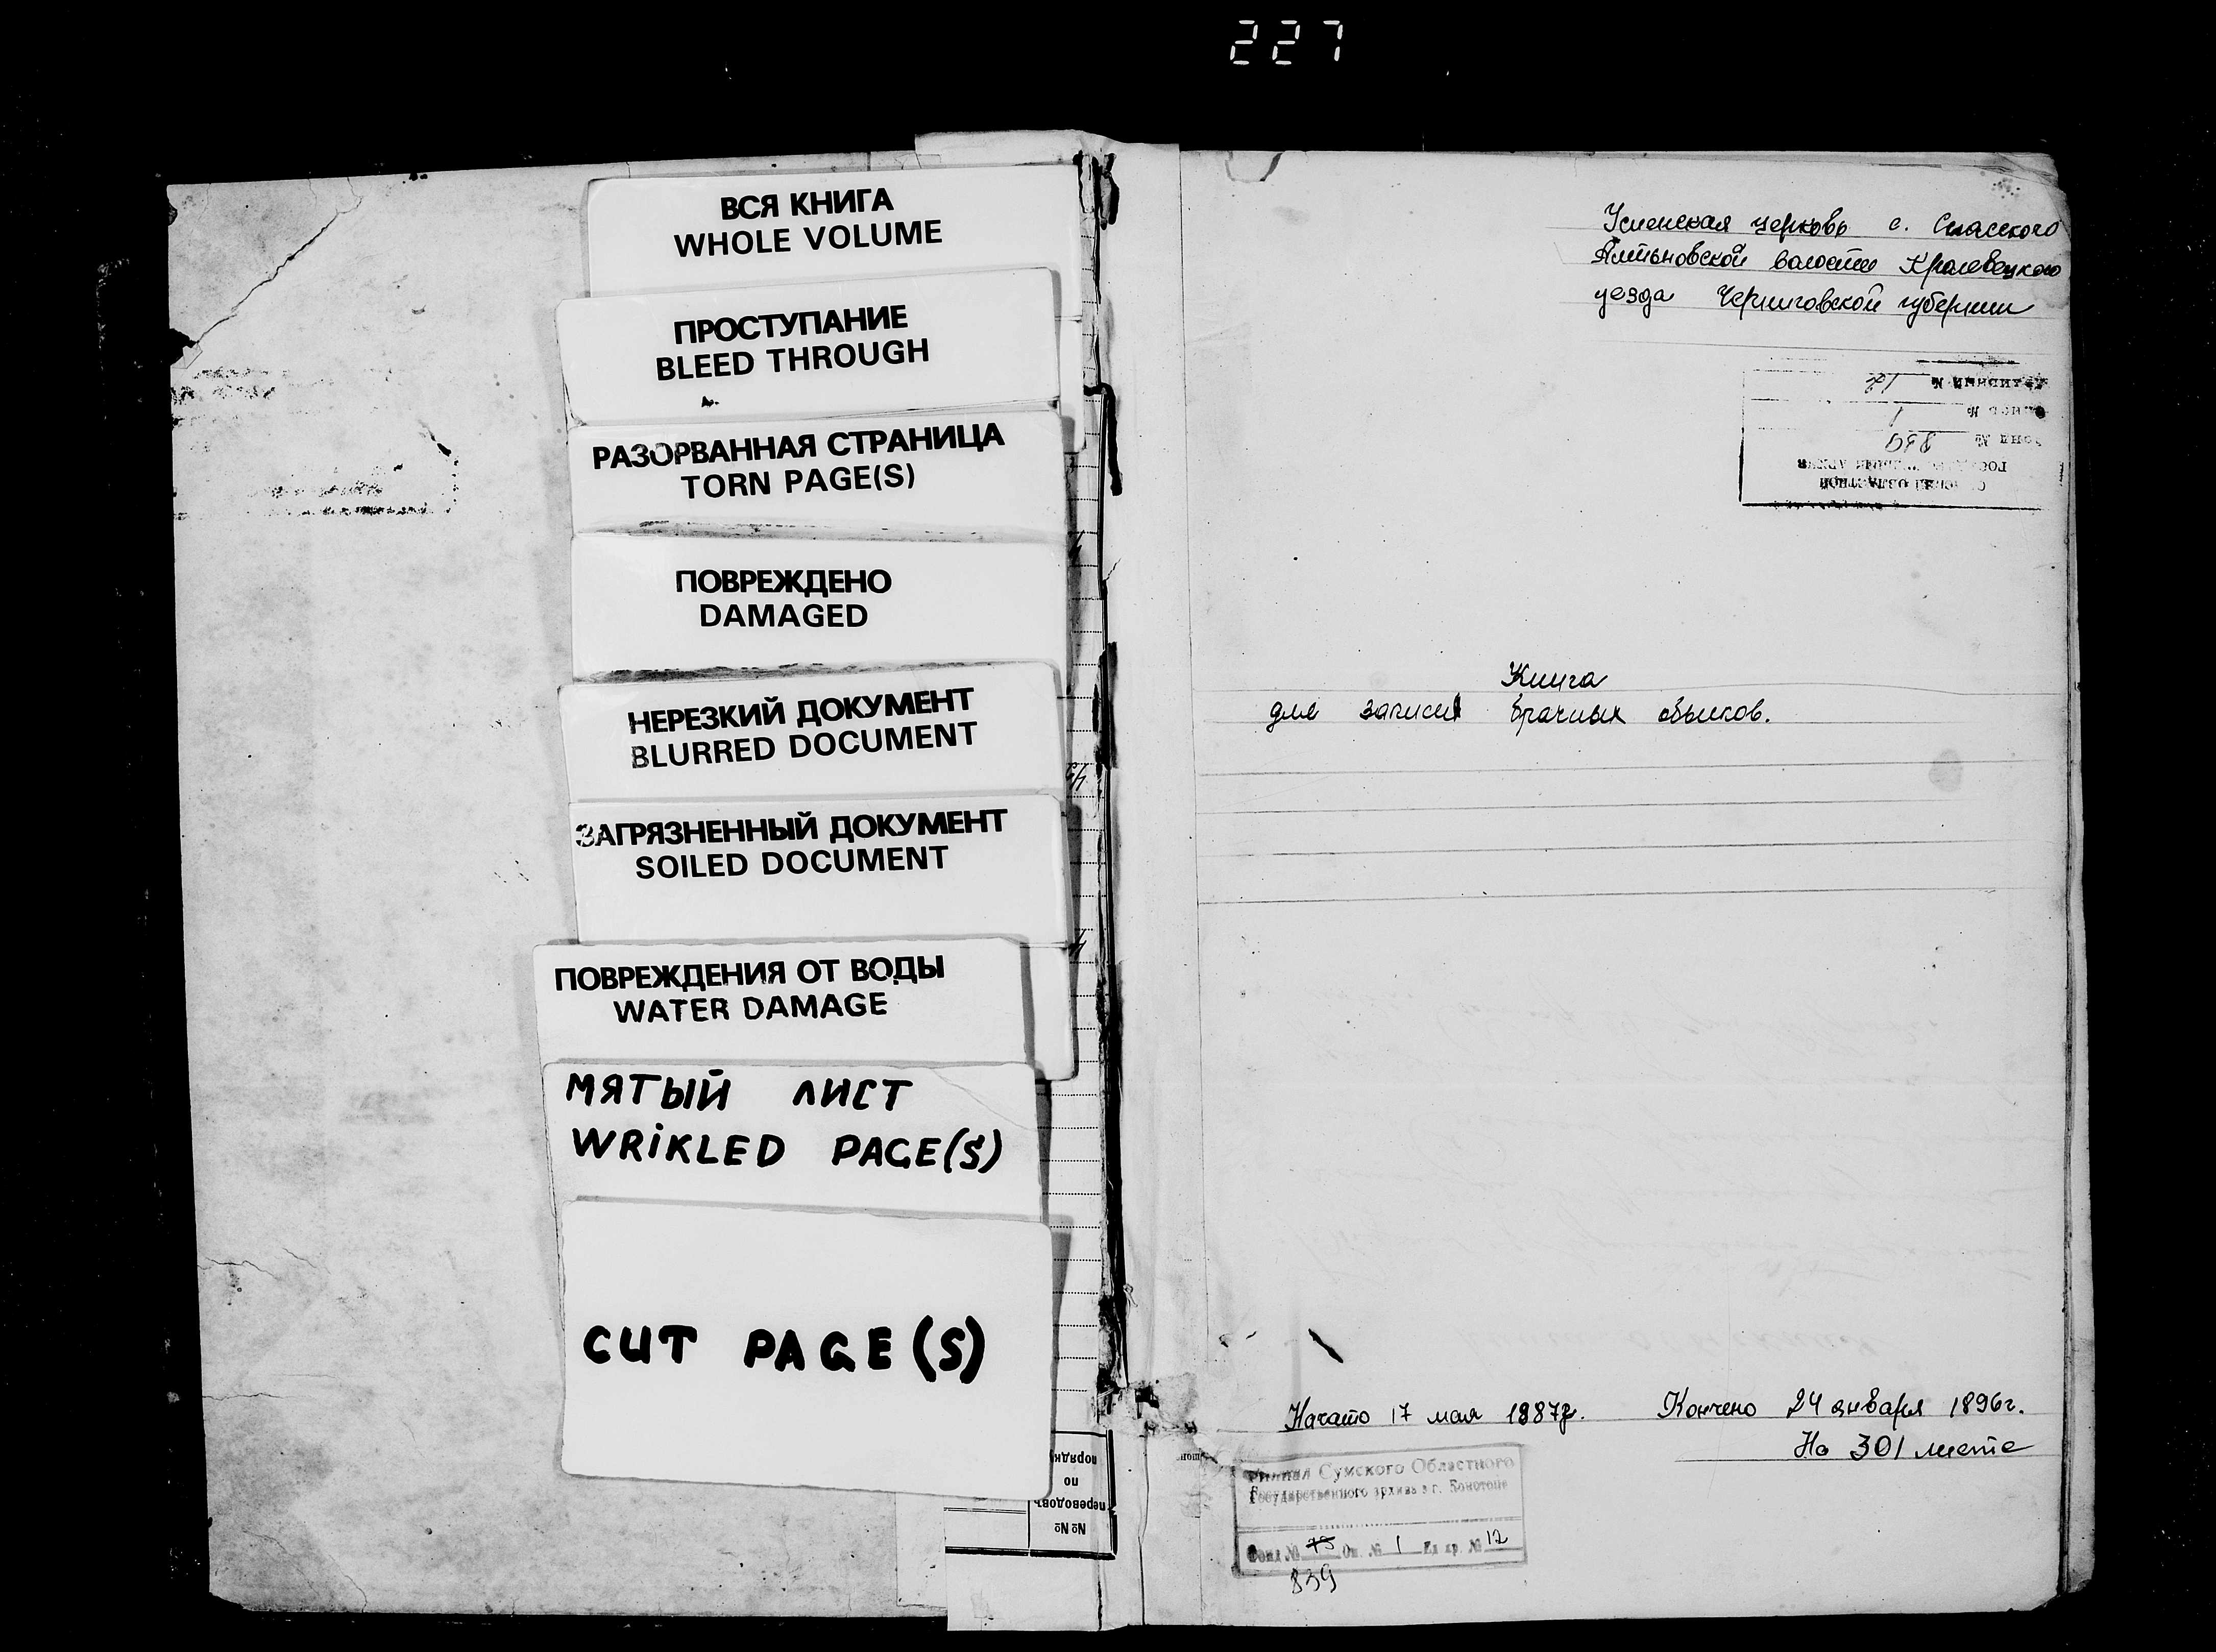 227
ВСЯ КНИГА
WHOLE VOLUME
ПРОСТУПАНИЕ
BLEED THROUGH
РАЗОРВАННАЯ СТРАНИЦА
TORN PAGE(S)
ПОВРЕЖДЕНО
DAMAGED
НЕРЕЗКИЙ ДОКУМЕНТ
BLURRED DOCUMENT
ЗАГРЯЗНЕННЫЙ ДОКУМЕНТ
SOILED DOCUMENT
ПОВРЕЖДЕНИЯ ОТ ВОДЫ
WATER DAMAGE
МЯТЫЙ ЛИСТ
WRIKLED PAGE(S)
CUT PAGE(S)
№№
переводовъ
по
порядку
Успенская церковь с. Спасского
Алтыновской волости Кролевецкого
уезда Черниговской губернии
ОБЛАСТНОЙ
ФОНД № 839
1
12
Книга
для записи брачных обысков.
Начато 17 мая 1887г. Кончено 24 января 1896г.
На 301 листе
Филиал Сумского Областного
Государственного архива в г. Конотопе
Фонд № 75 Оп. № 1 Ед. хр. № 12
839